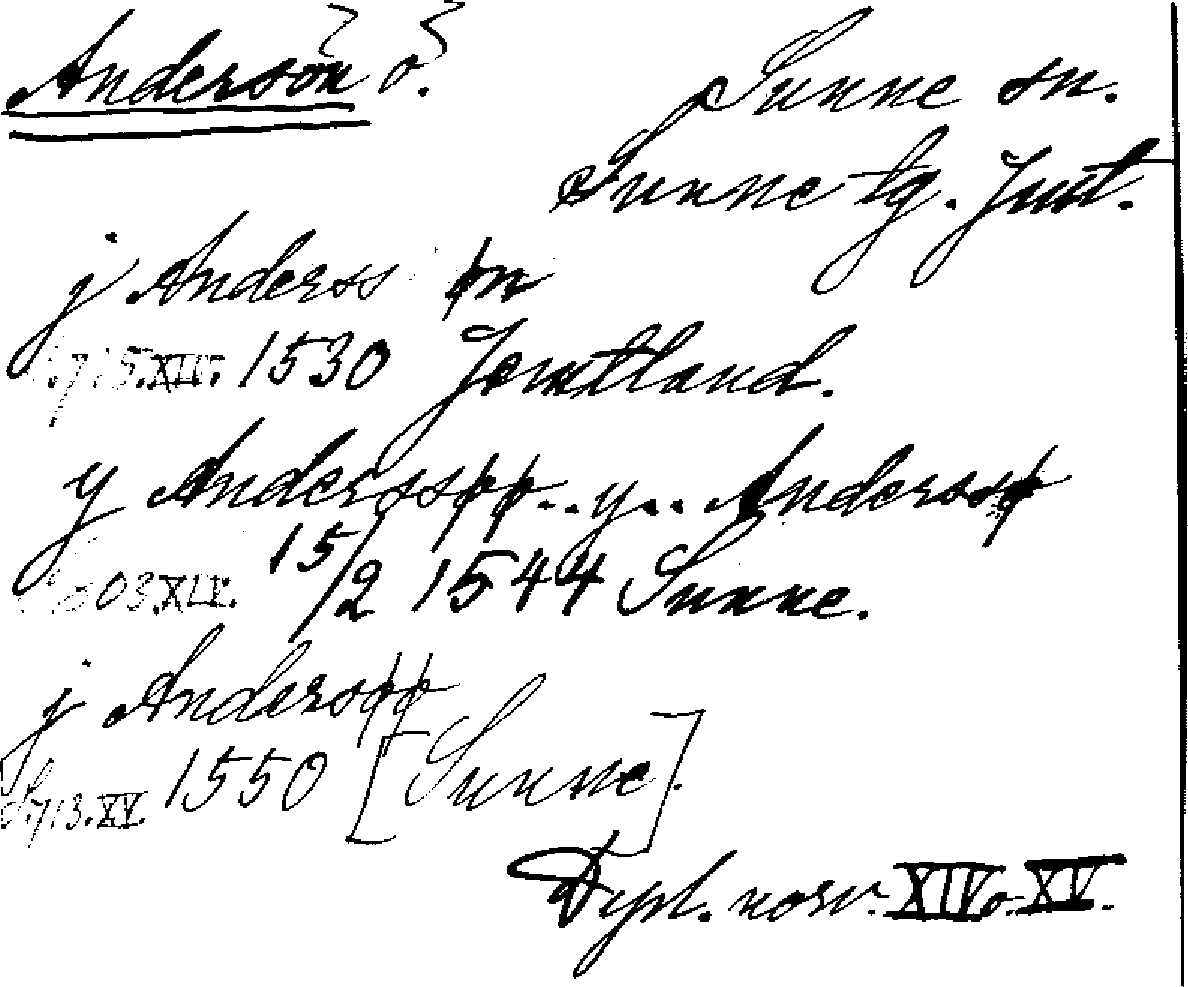 Andersön ö.
Sunne sn.
Sunne tg. Jmtl.
j Anderss øn
715.XIV. 1530 Jemtland.
y Anderssøø...y.. Anderssø
803.XIV. 15/2 1544 Sunne.
j Andersøø
S.713.XV. 1550 [Sunne].
Dipl. norv. XIV o. XV.